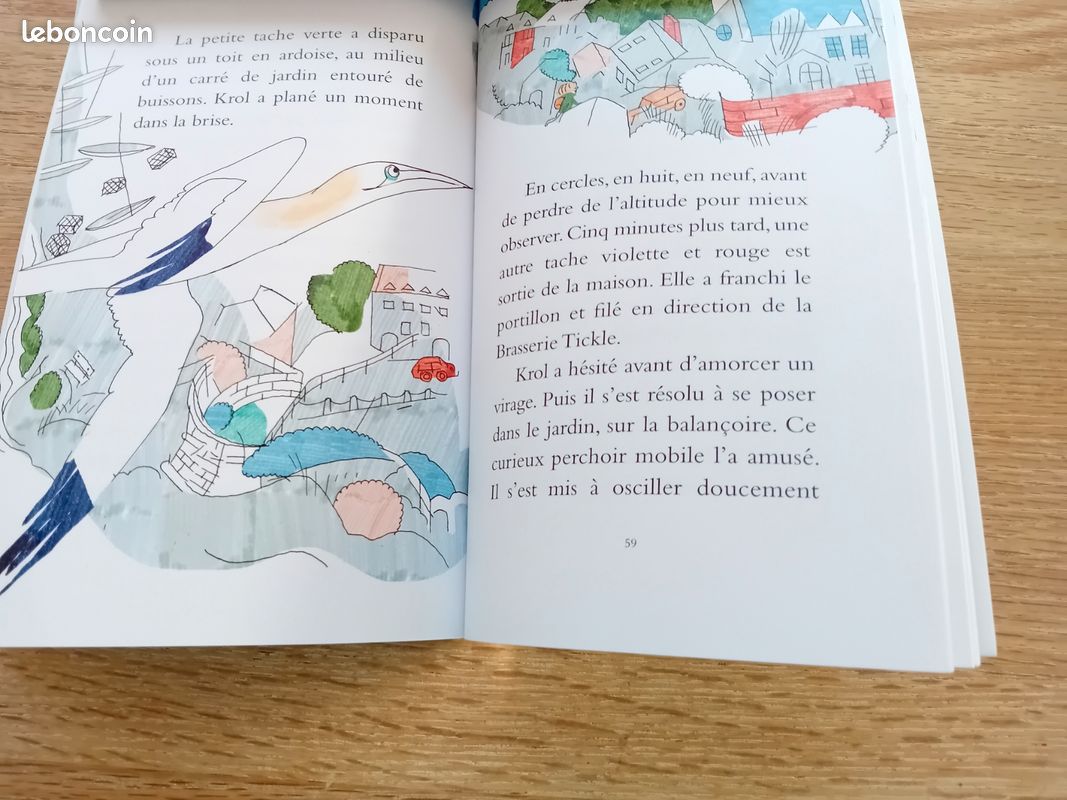 leboncoin
La petite tache verte a disparu
sous un toit en ardoise, au milieu
d'un carré de jardin entouré de
buissons. Krol a plané un moment
dans la brise.
En cercles, en huit, en neuf, avant
de perdre de l'altitude pour mieux
observer. Cinq minutes plus tard, une
autre tache violette et rouge est
sortie de la maison. Elle a franchi le
portillon et filé en direction de la
Brasserie Tickle.
Krol a hésité avant d'amorcer un
virage. Puis il s'est résolu à se poser
dans le jardin, sur la balançoire. Ce
curieux perchoir mobile l'a amusé.
Il s'est mis à osciller doucement
59